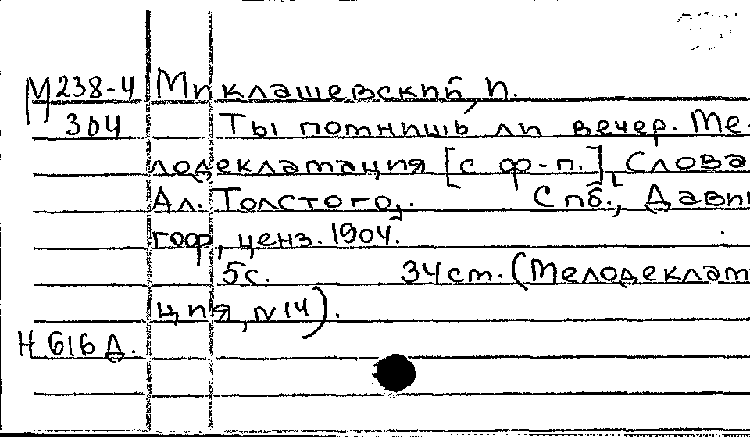 М 238-4 Миклашевский, И.
304 Ты помнишь ли вечер. Ме-
лодекламация [с ф-п.], Слова
Ал. Толстого. Спб., Дави
гоф, ценз. 1904.
5с. 34см. (Мелодеклам
ция, N 14).
Н 616 Д.